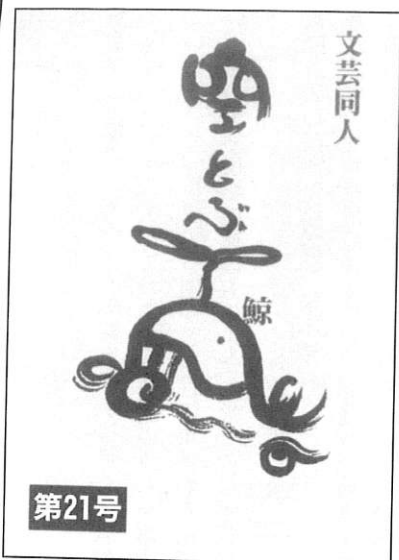 文芸同人
空とぶ
鯨
第21号